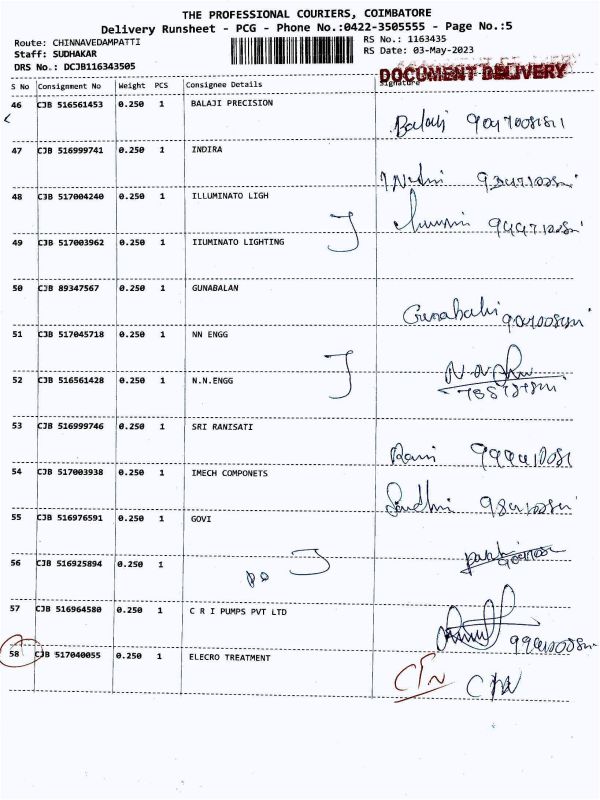 THE PROFESSIONAL COURIERS, COIMBATORE
Delivery Runsheet - PCG - Phone No.:0422-3505555 - Page No.:5
Route: CHINNAVEDAMPATTI RS No.: 1163435
Staff: SUDHAKAR RS Date: 03-May-2023
DRS No.: DCJB116343505
DOCUMENT DELIVERY
S No Consignment No Weight PCS Consignee Details Signature
46 CJB 516561453 0.250 1 BALAJI PRECISION
Balaji
47 CJB 516999741 0.250 1 INDIRA
48 CJB 517004240 0.250 1 ILLUMINATO LIGH
49 CJB 517003962 0.250 1 IIUMINATO LIGHTING
50 CJB 89347567 0.250 1 GUNABALAN
51 CJB 517045718 0.250 1 NN ENGG
52 CJB 516561428 0.250 1 N.N.ENGG
53 CJB 516999746 0.250 1 SRI RANISATI
Rani
54 CJB 517003938 0.250 1 IMECH COMPONETS
55 CJB 516976591 0.250 1 GOVI
56 CJB 516925894 0.250 1
57 CJB 516964580 0.250 1 C R I PUMPS PVT LTD
58 CJB 517040055 0.250 1 ELECRO TREATMENT